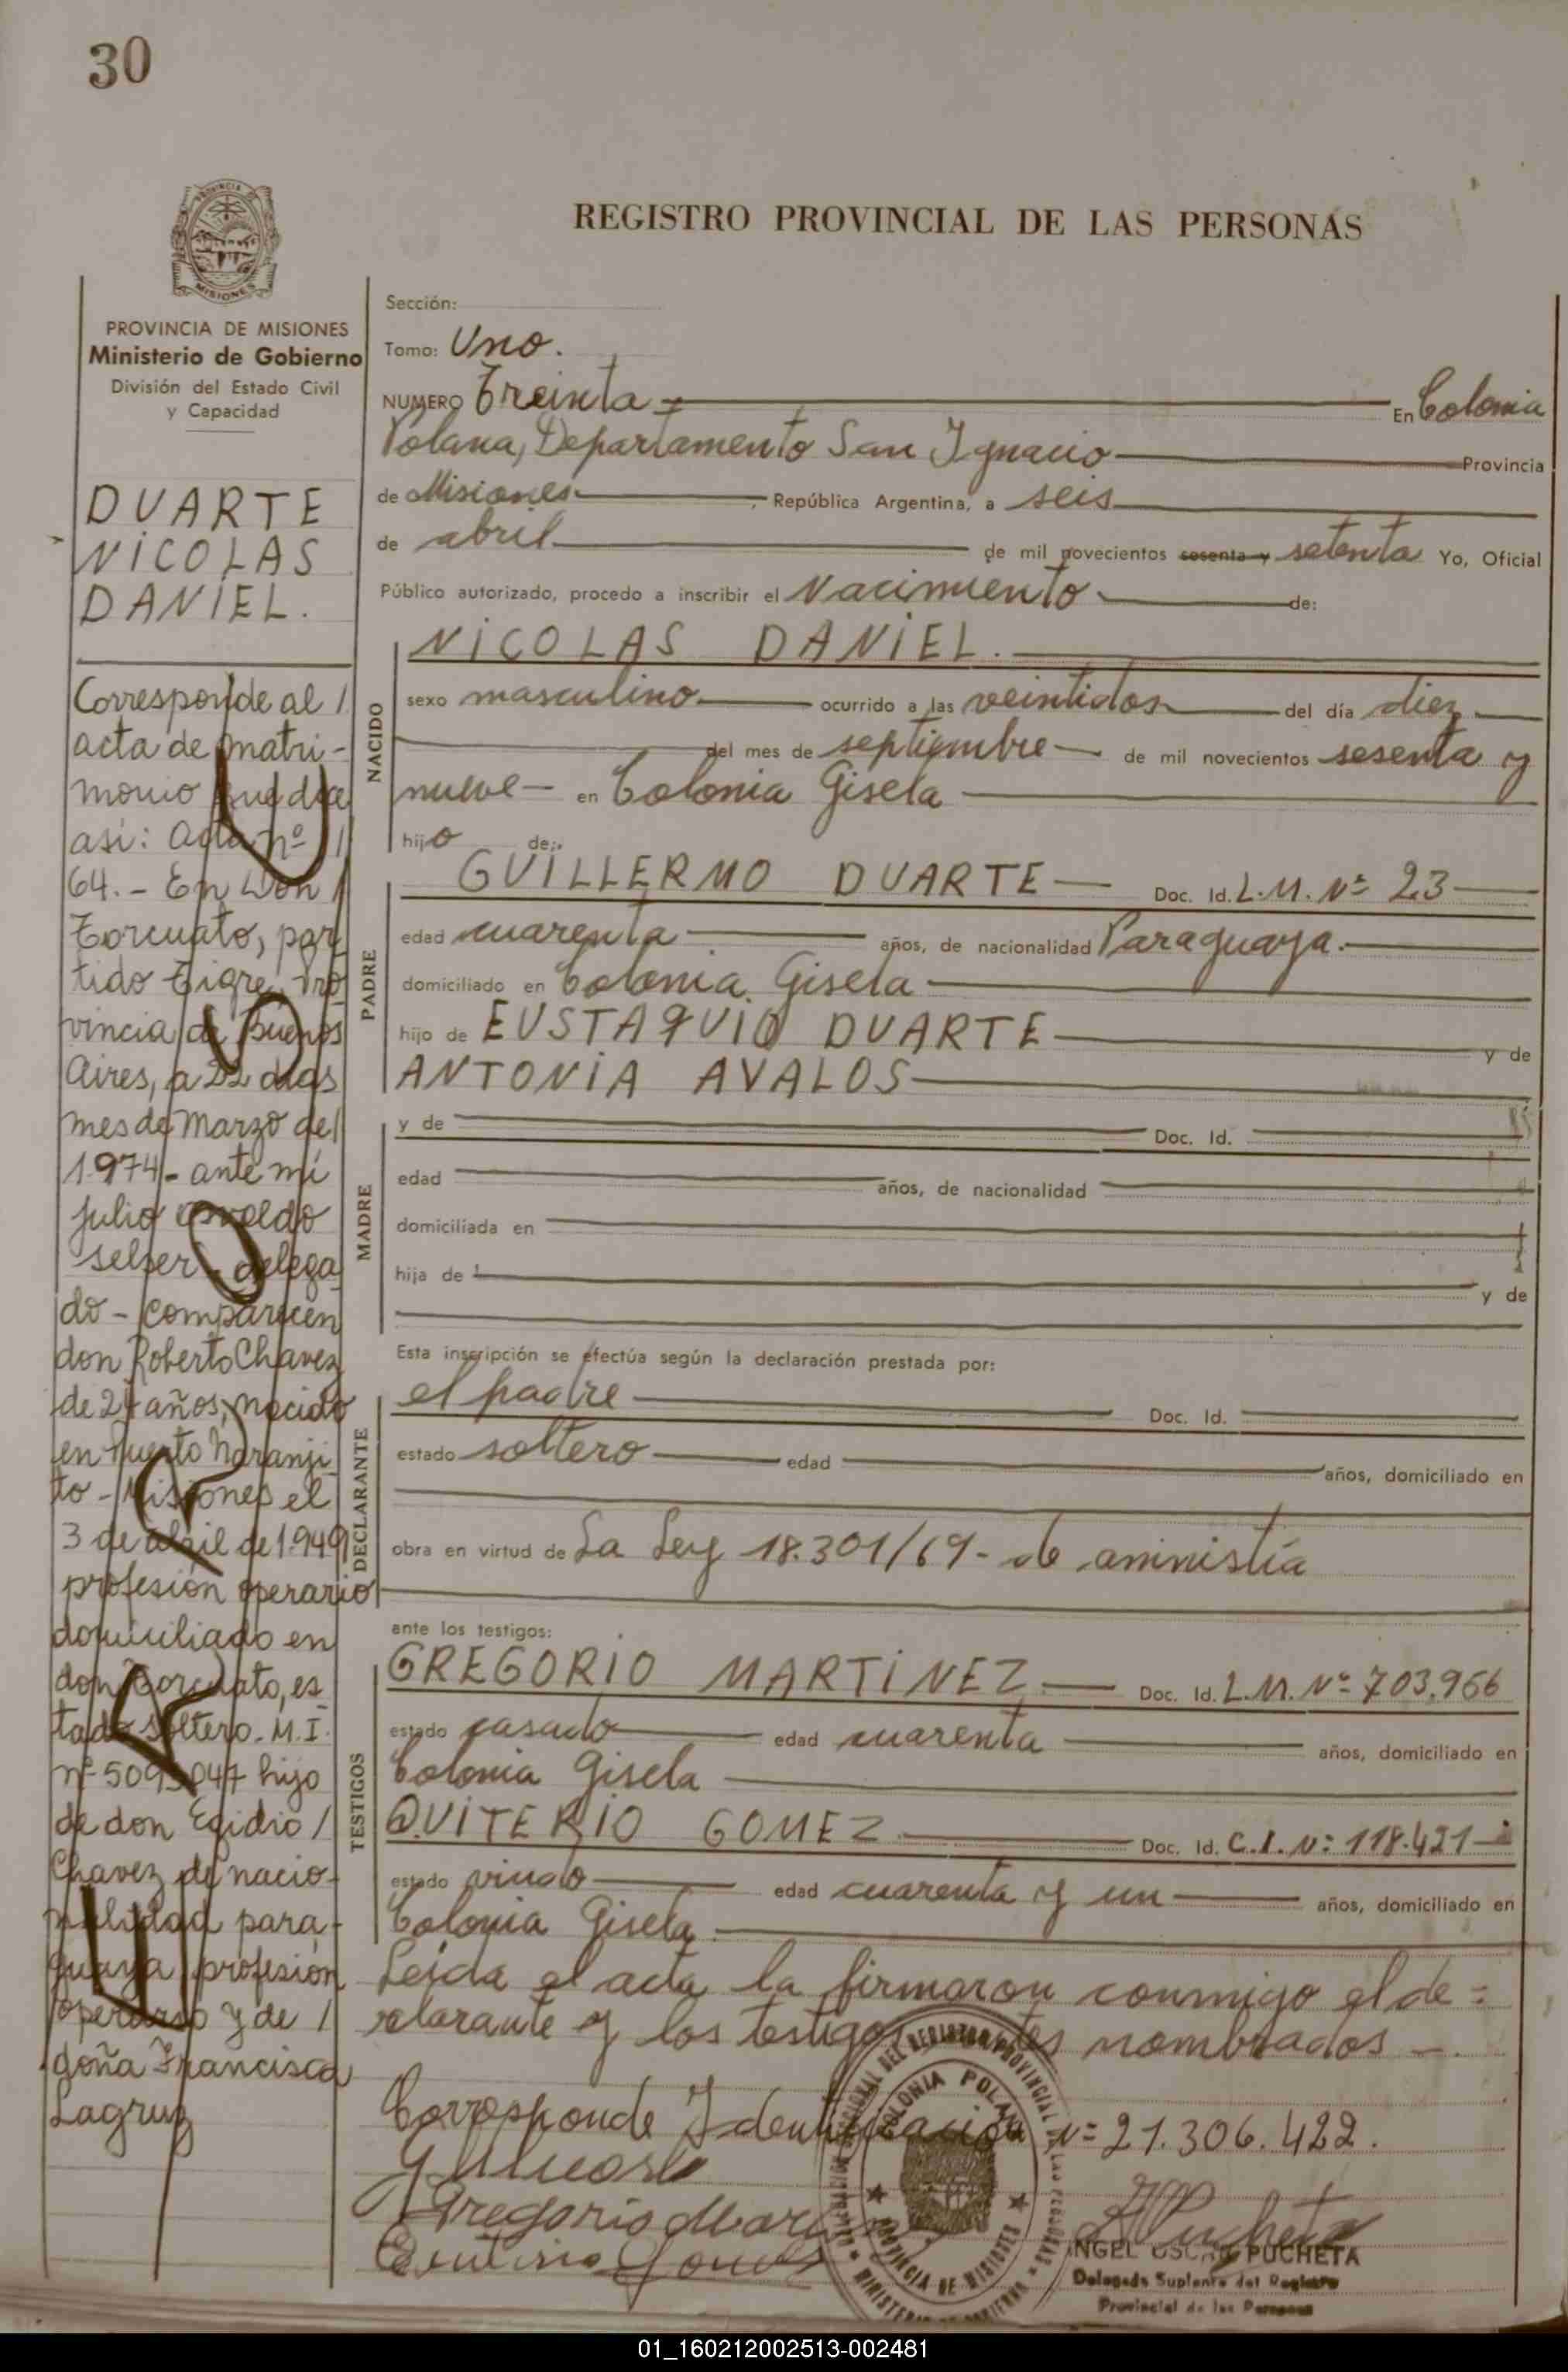 30
PROVINCIA DE MISIONES
REGISTRO PROVINCIAL DE LAS PERSONAS
PROVINCIA DE MISIONES
Ministerio de Gobierno
División del Estado Civil
y Capacidad
DUARTE
NICOLAS
DANIEL.
Corresponde al /
acta de matri-
monio que dice
asi: Acta nº /
64.- En Don /
Torcuato, par
tido Tigre, Pro
vincia de Buenos
Aires, a 22 dias
mes de Marzo de/
1.974 - ante mi
Julio Osvaldo
Selser - delega
do - comparecen
don Roberto Chavez
de 24 años, nacido
en Puerto Naranji
to - Misiones el
3 de abril de 1.949
profesión operario
domiciliado en
don Torcuato, es
tado soltero. M.I.
nº 5093047 hijo
de don Egidio /
Chavez de nacio-
nalidad para-
guaya profesión
operario y de /
doña Francisca
Lagruz
Sección:
Tomo: Uno.
NUMERO Treinta En Colonia
Polana, Departamento San Ignacio Provincia
de Misiones, República Argentina, a seis
de abril de mil novecientos sesenta y setenta Yo, Oficial
Público autorizado, procedo a inscribir el Nacimiento de:
NACIDO
NICOLAS DANIEL.
sexo masculino ocurrido a las veintidos del día diez
del mes de septiembre de mil novecientos sesenta y
nueve en Colonia Gisela
hijo de:
PADRE
GUILLERMO DUARTE Doc. Id. L.M. Nº 23
edad cuarenta años, de nacionalidad Paraguaya.
domiciliado en Colonia Gisela
hijo de EUSTAQUIO DUARTE y de
ANTONIA AVALOS
MADRE
y de Doc. Id.
edad años, de nacionalidad
domiciliada en
hija de y de
Esta inscripción se efectúa según la declaración prestada por:
DECLARANTE
el padre Doc. Id.
estado soltero edad años, domiciliado en
obra en virtud de La Ley 18.301/69 - de aministía
ante los testigos:
TESTIGOS
GREGORIO MARTINEZ Doc. Id. L.M. Nº 703.966
estado casado edad cuarenta años, domiciliado en
Colonia Gisela
QUITERIO GOMEZ Doc. Id. C.I. Nº 118.421
estado viudo edad cuarenta y un años, domiciliado en
Colonia Gisela
Leida el acta la firmaron conmigo el de=
clarante y los testigos antes nombrados -.
Corresponde Identificación Nº 21.306.422.
Gregorio
COLONIA POLANA
PROVINCIA DE MISIONES
ANGEL OSCAR PUCHETA
Delegado Suplente del Registro
Provincial de las Personas
01_160212002513-002481